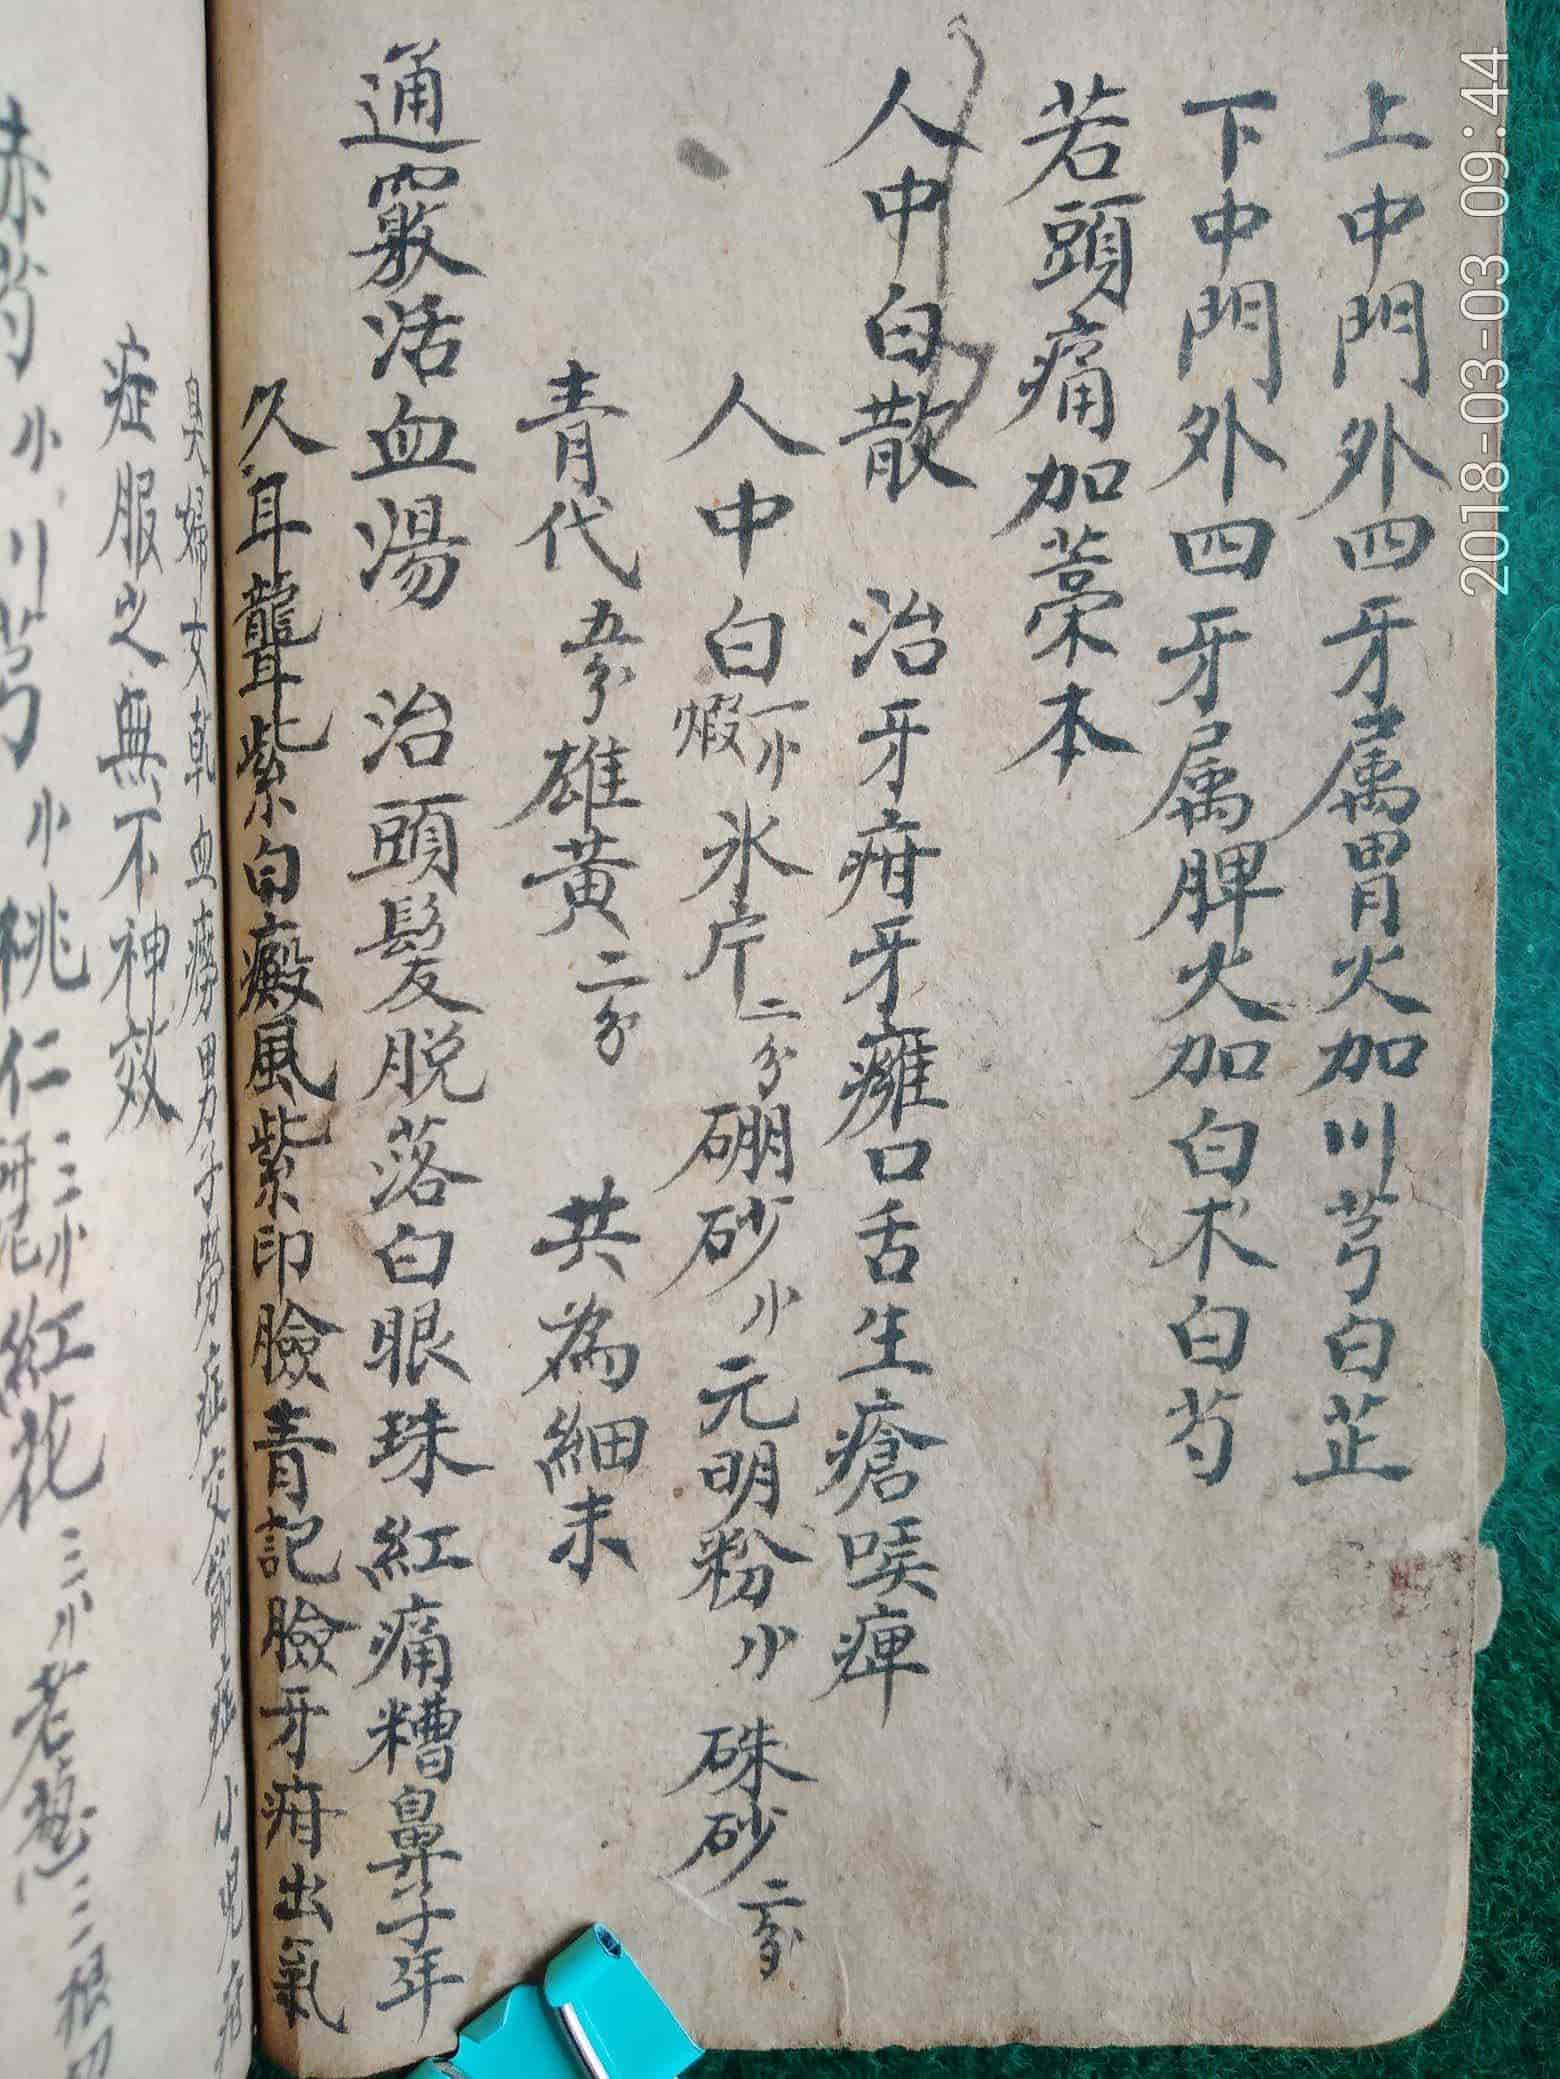 上中門外四牙属胃火加川芎白芷
下中門外四牙属脾火加白术白芍
若頭痛加藁本
人中白散 治牙疳牙癰口舌生瘡喉痺
人中白一小煅氷片二分硼砂小元明粉小硃砂二分
青代五分雄黃二分 共為細末
通竅活血湯 治頭髮脱落白眼珠紅痛糟鼻子年
久耳聾紫白癜風紫印臉青記臉牙疳出氣
臭婦女乾血癆男子勞症交節症小児疳
症服之無不神效
赤芍小川芎小桃仁三小紅花三小老葱三根切
2018-03-03 09:44